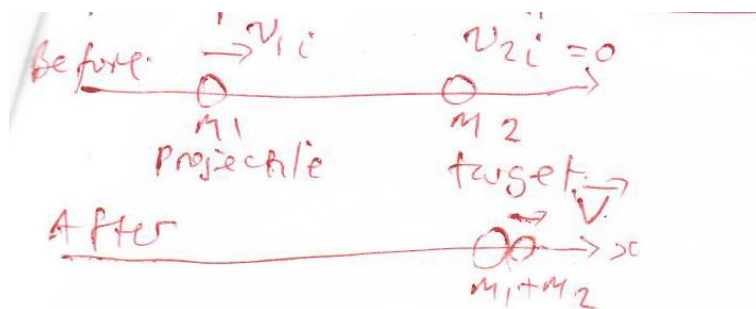 Before. → v1i v2i = 0
m1 m2
projectile target
After V →
x
m1+m2